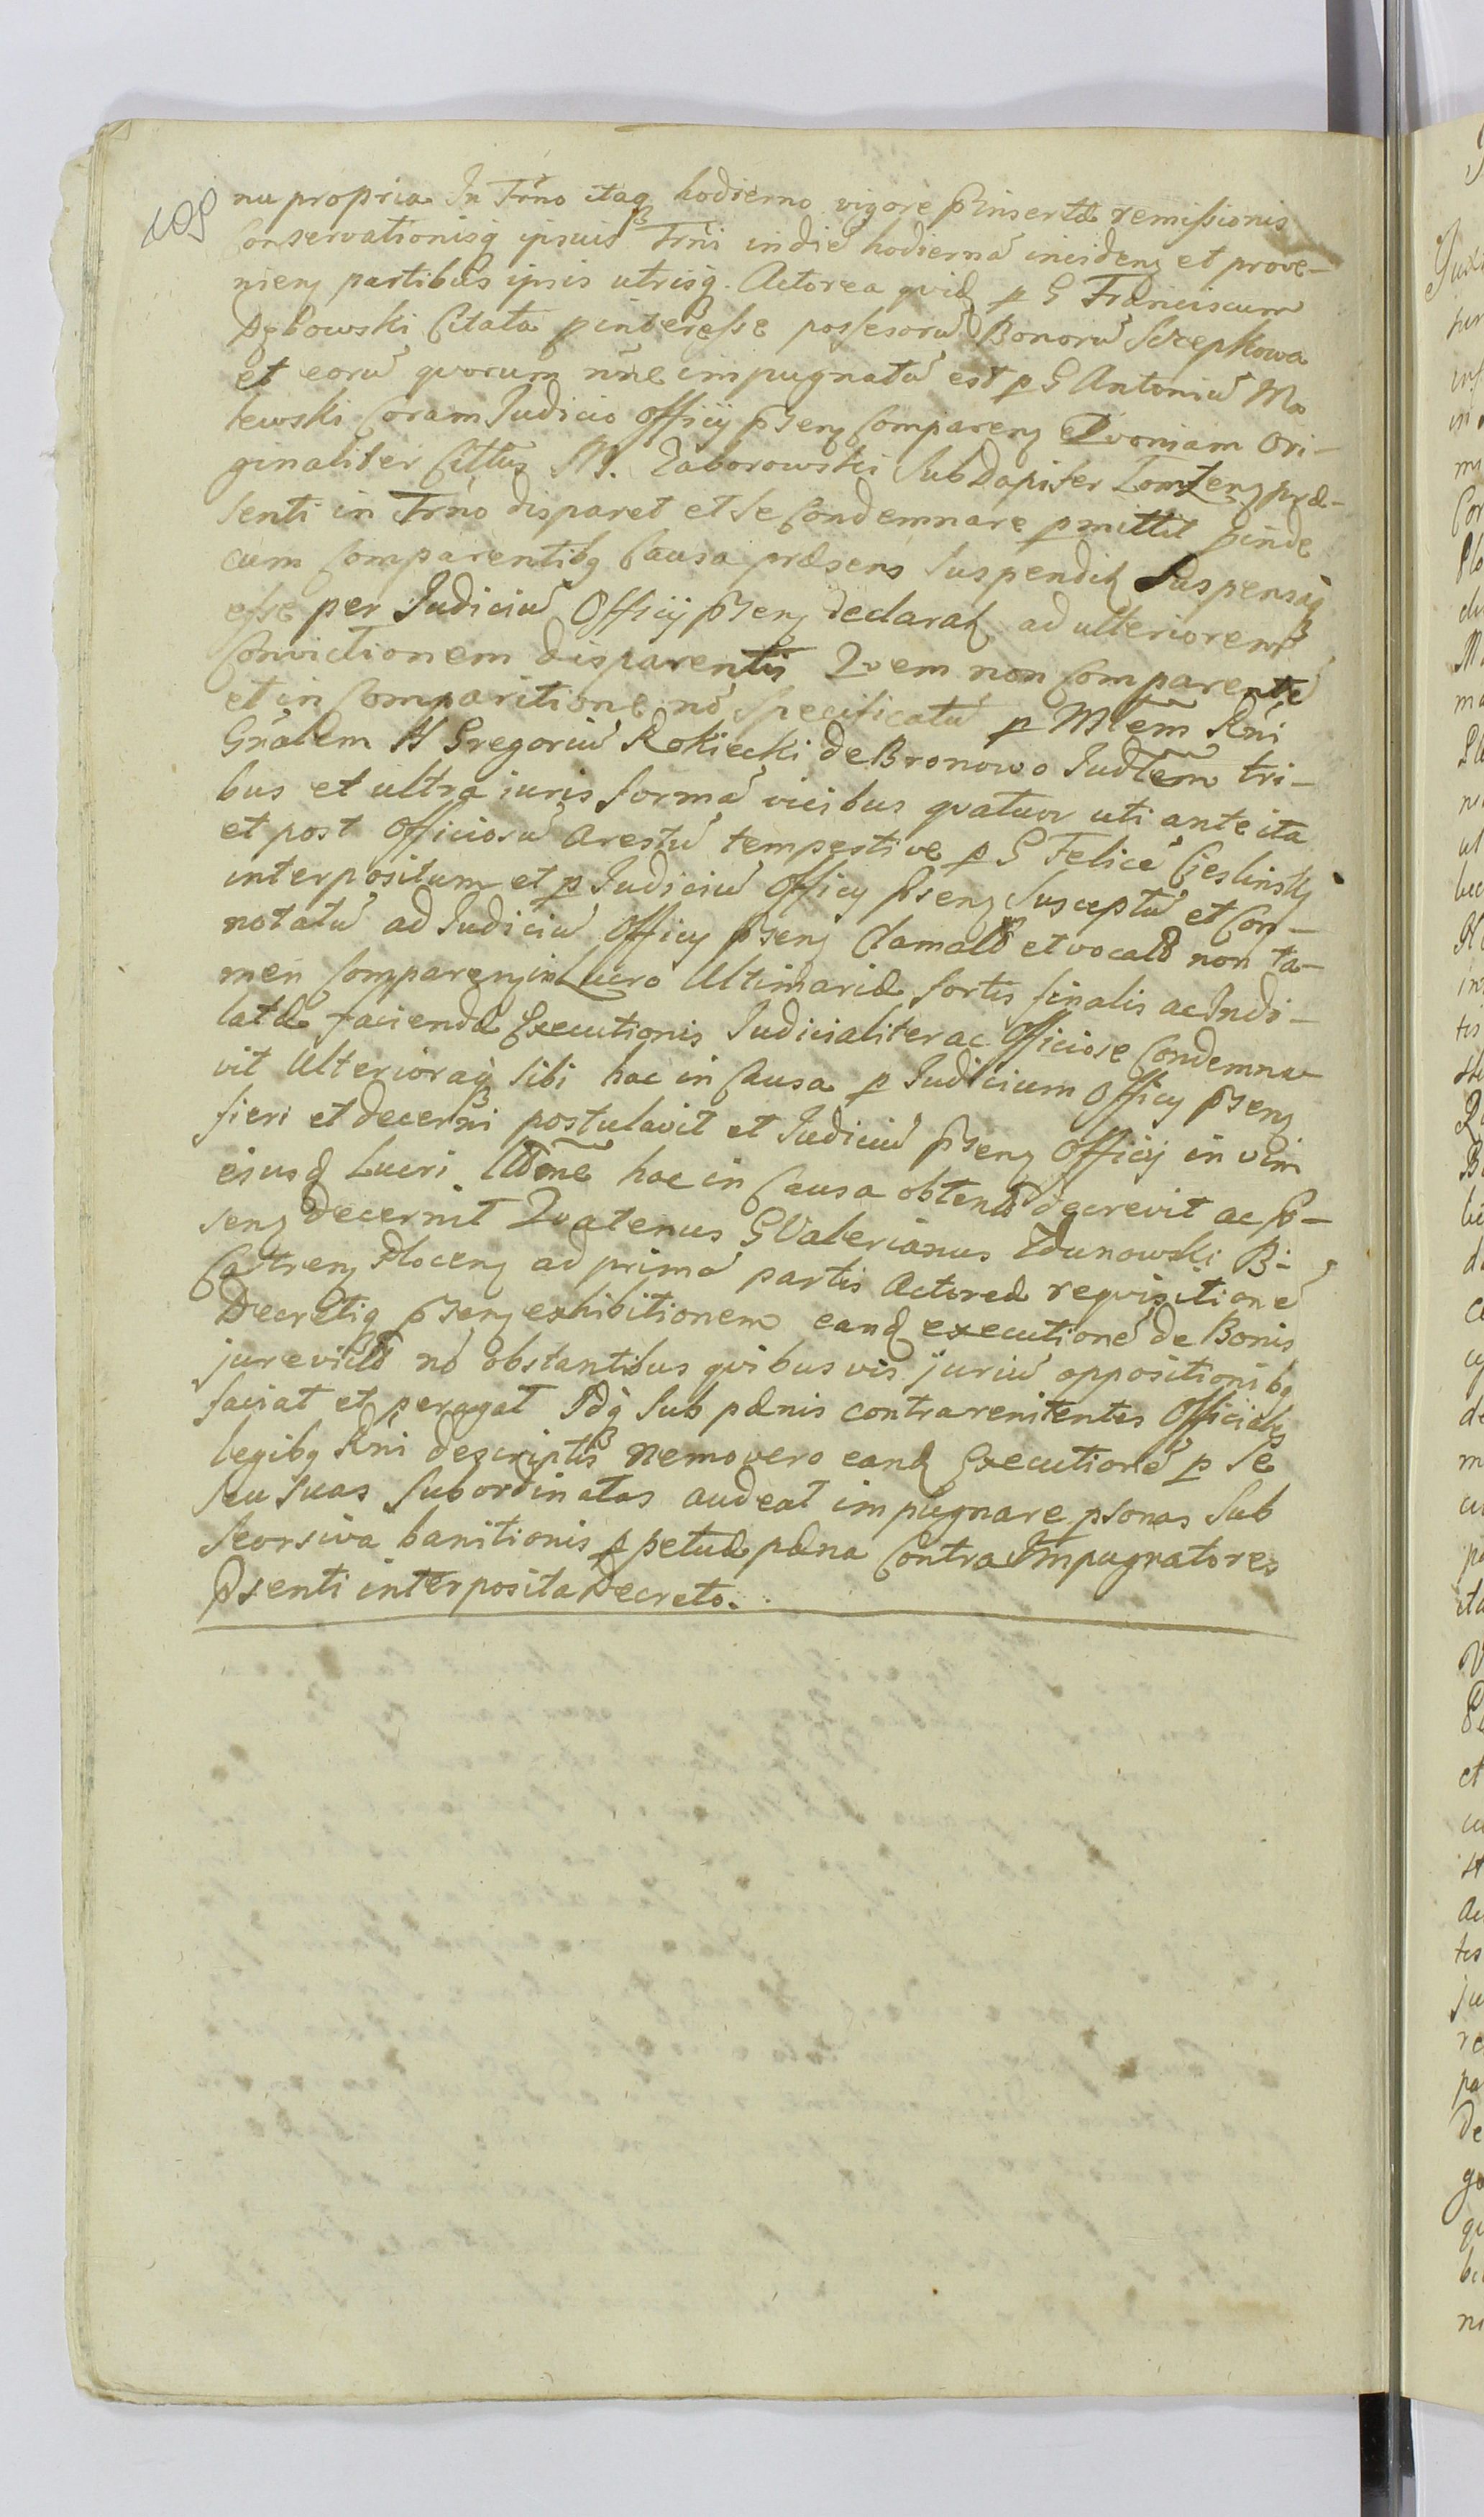 109
nu propria In Trño itaq hodierno vigore ꝑinsertæ remissionis
Conservationisq ipsius Trñi indie hodierna incidenꝫ et prove-
nienꝫ partibus ipsis utrisq. Actorea qvidꝫ ꝑ G Franciscum
Dębowski Citata ꝑ interesse possesorũ Bonorũ Szczepkowa
et eorũ qvorum nñe impugnatũ est ꝑ G Antoniũ Ma
kewski Coram Judicio Officij ꝑsenꝫ Comparenꝫ Qvoniam Ori-
ginaliter Cittus M. Zaborowski SubDapifer Lomzenꝫ præ-
senti in Trño disparet et se Condemnare ꝑmittit ꝑinde
cum Comparentibꝫ Causa præsens suspendit Suspensaq
esse per Judiciũ Officij ꝑsenꝫ declarat ad ulteriorem
Convictionem disparentis Qvem non Comparentẽ
et in Comparitione nõ specificatũ ꝑ Mlem Rñi
Gñalem H Gregoriũ Rokiecki de Bronowo Judlem tri-
bus et ultra juris formã vicibus qvatuor uti ante ita
et post Officiosũ Arestũ tempestive ꝑ G Felicẽ Cieslinski
interpositum et ꝑ Judiciũ Officij ꝑsenꝫ Susceptũ et Con-
notatũ ad Judiciũ Officij ꝑsenꝫ Clamatũ et vocatũ non ta-
men Comparenꝫ in Lucro Ultimariæ sortis finalis ac Indi-
latæ faciendæ Executionis Judicialiter ac Officiose Condemna-
vit Ulterioraq sibi hac in Causa ꝑ Judicium Officij ꝑsenꝫ
fieri et decerni postulavit et Judiciũ ꝑsenꝫ Officij in vim
ejusd Lucri hac in Causa obtenti decrevit ac ꝑ-
senꝫ decernit Qvatenus G Valerianus Zdunowski B:
Castrenꝫ Plocenꝫ ad primã partis Actoreæ reqvisitionẽ
Decretiq ꝑsenꝫ exhibitionem eand executionẽ de Bonis
jurevictis nõ obstantibus qvibusvis juriũ oppositionibꝫ
faciat et peragat Idq sub pænis contra renitentes Officiales
legibꝫ Rñi descriptis Nemo vero eand Executionẽ ꝑ se
seu suas subordinatas audeat impugnare ꝑsonas sub
seorsiva banitionis ꝑpetuæ pæna Contra Impugnatores
ꝑsenti interposita Decreto.